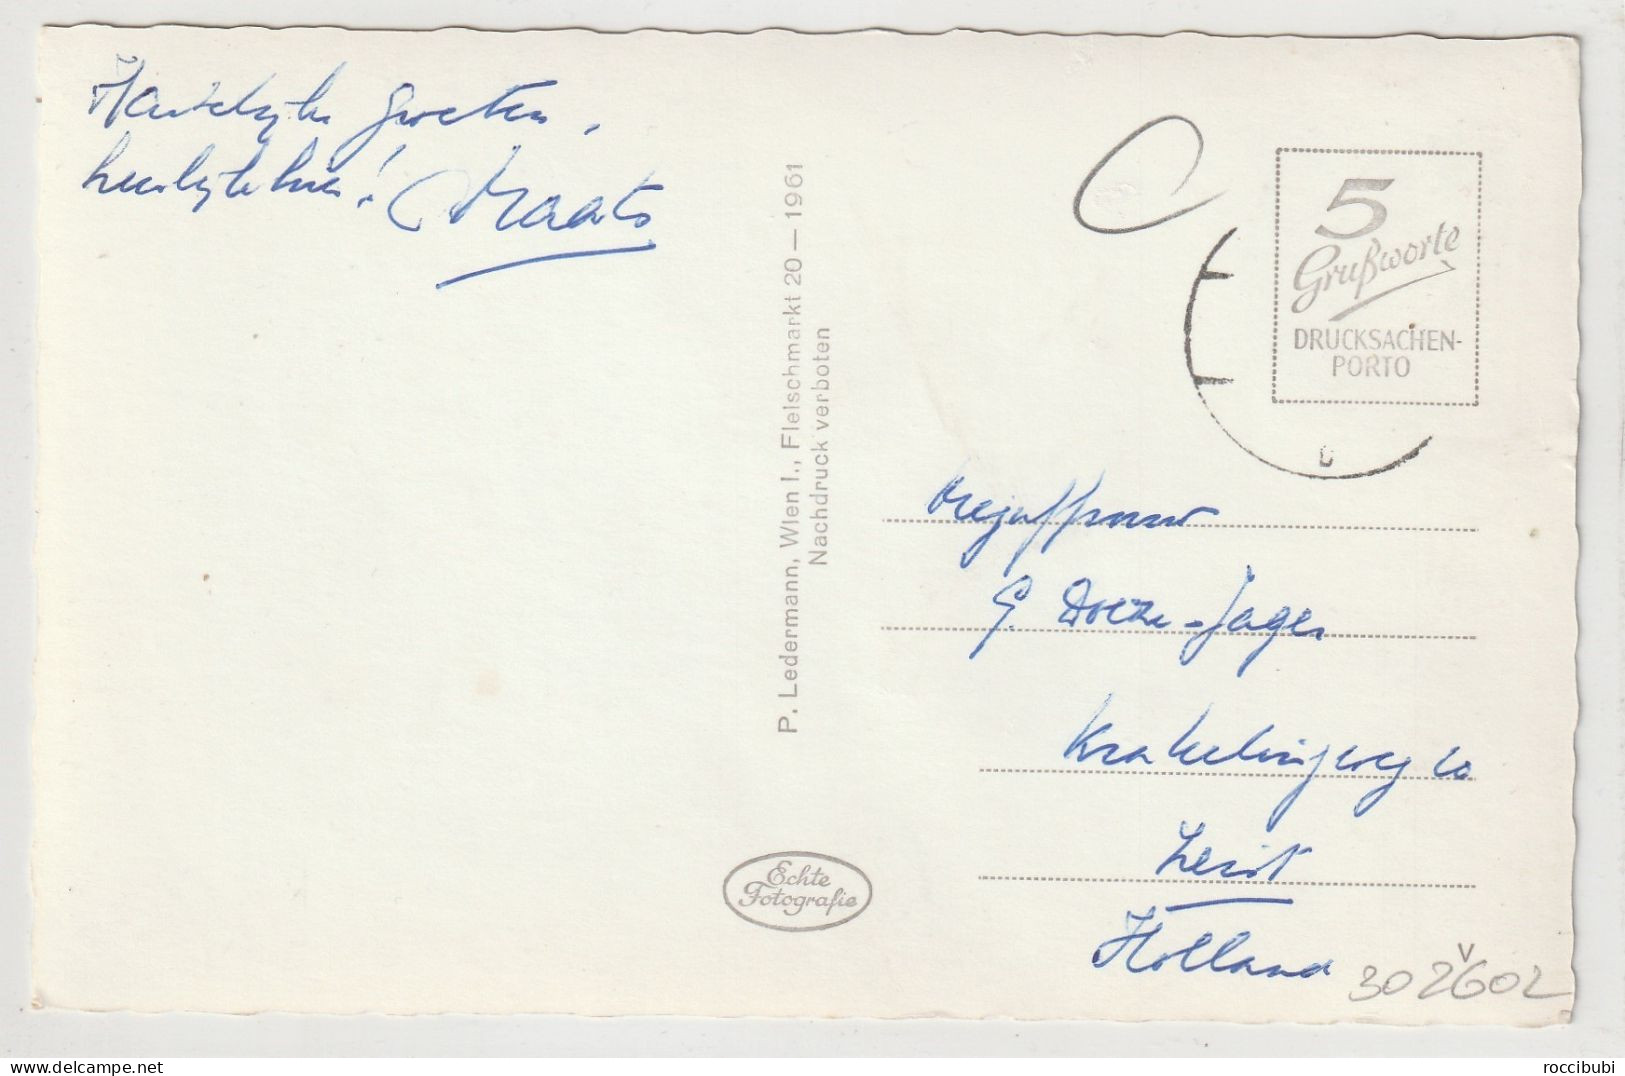 Hartelyke groeten,
heerlyk hier! Maats
P. Ledermann, Wien I., Fleischmarkt 20 — 1961
Nachdruck verboten
Echte
Fotografie
5
Grußworte
DRUCKSACHEN-
PORTO
Mejuffrouw
G. Jager
Krakelingweg 10
Zeist
Holland
302602
roccibubi
delcampe.net